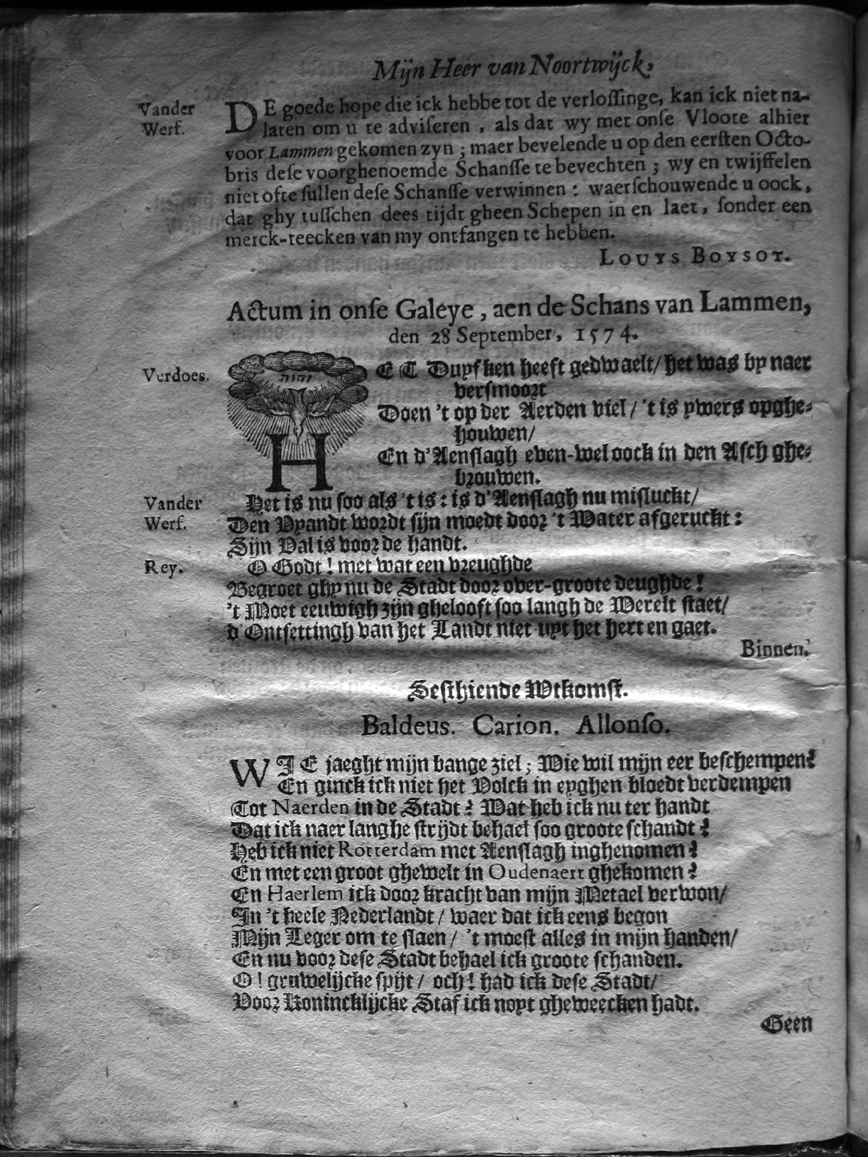 Mijn Heer van Noortwijck,
Vander Werf. DE goede hope die ick hebbe tot de verlossinge, kan ick niet na-
laten om u te adviseren, als dat wy met onse Vloote alhier
voor Lammen gekomen zyn; maer bevelende u op den eersten Octo-
bris dese voorghenoemde Schansse te bevechten; wy en twijffelen
niet ofte sullen dese Schansse verwinnen: waerschouwende u oock,
dat ghy tusschen dees tijdt gheen Schepen in en laet, sonder een
merck-teecken van my ontfangen te hebben.
LOUYS BOYSOT.
Actum in onse Galeye, aen de Schans van Lammen,
den 28 September, 1574.
יהוה
Verdoes. HET Duyfken heeft gedwaelt/ het was by naer
versmoort
Doen 't op der Aerden viel/ 't is ywers opghe-
houwen/
En d'Aenslagh even-wel oock in den Asch ghe-
brouwen.
Vander Werf. Het is nu soo als 't is: is d'Aenslagh nu misluckt/
Den Vyandt wordt sijn moedt door 't Water afgeruckt:
Sijn Val is voor de handt.
Rey. O Godt! met wat een vreughde
Begroet ghy nu de Stadt door over-groote deughde!
't Moet eeuwigh zijn ghelooft soo langh de Werelt staet/
d'Ontsettingh van het Landt niet uyt het hert en gaet.
Binnen.
Sesthiende Wtkomst.
Baldeus. Carion. Allonso.
WIE jaeght mijn bange ziel; Wie wil mijn eer beschempen?
En ginck ick niet het Volck in eyghen bloedt verdempen
Tot Naerden in de Stadt? Wat heb ick nu ter handt
Dat ick naer langhe strijdt behael soo groote schandt?
Heb ick niet Rotterdam met Aenslagh inghenomen?
En met een groot ghewelt in Oudenaert ghekomen?
En Haerlem ick door kracht van mijn Metael verwon/
In 't heele Nederlandt/ waer dat ick eens begon
Mijn Leger om te slaen/ 't moest alles in mijn handen/
En nu voor dese Stadt behael ick groote schanden.
O! gruwelijcke spijt/ och! had ick dese Stadt/
Voor Konincklijcke Staf ick noyt gheweecken hadt.
Geen